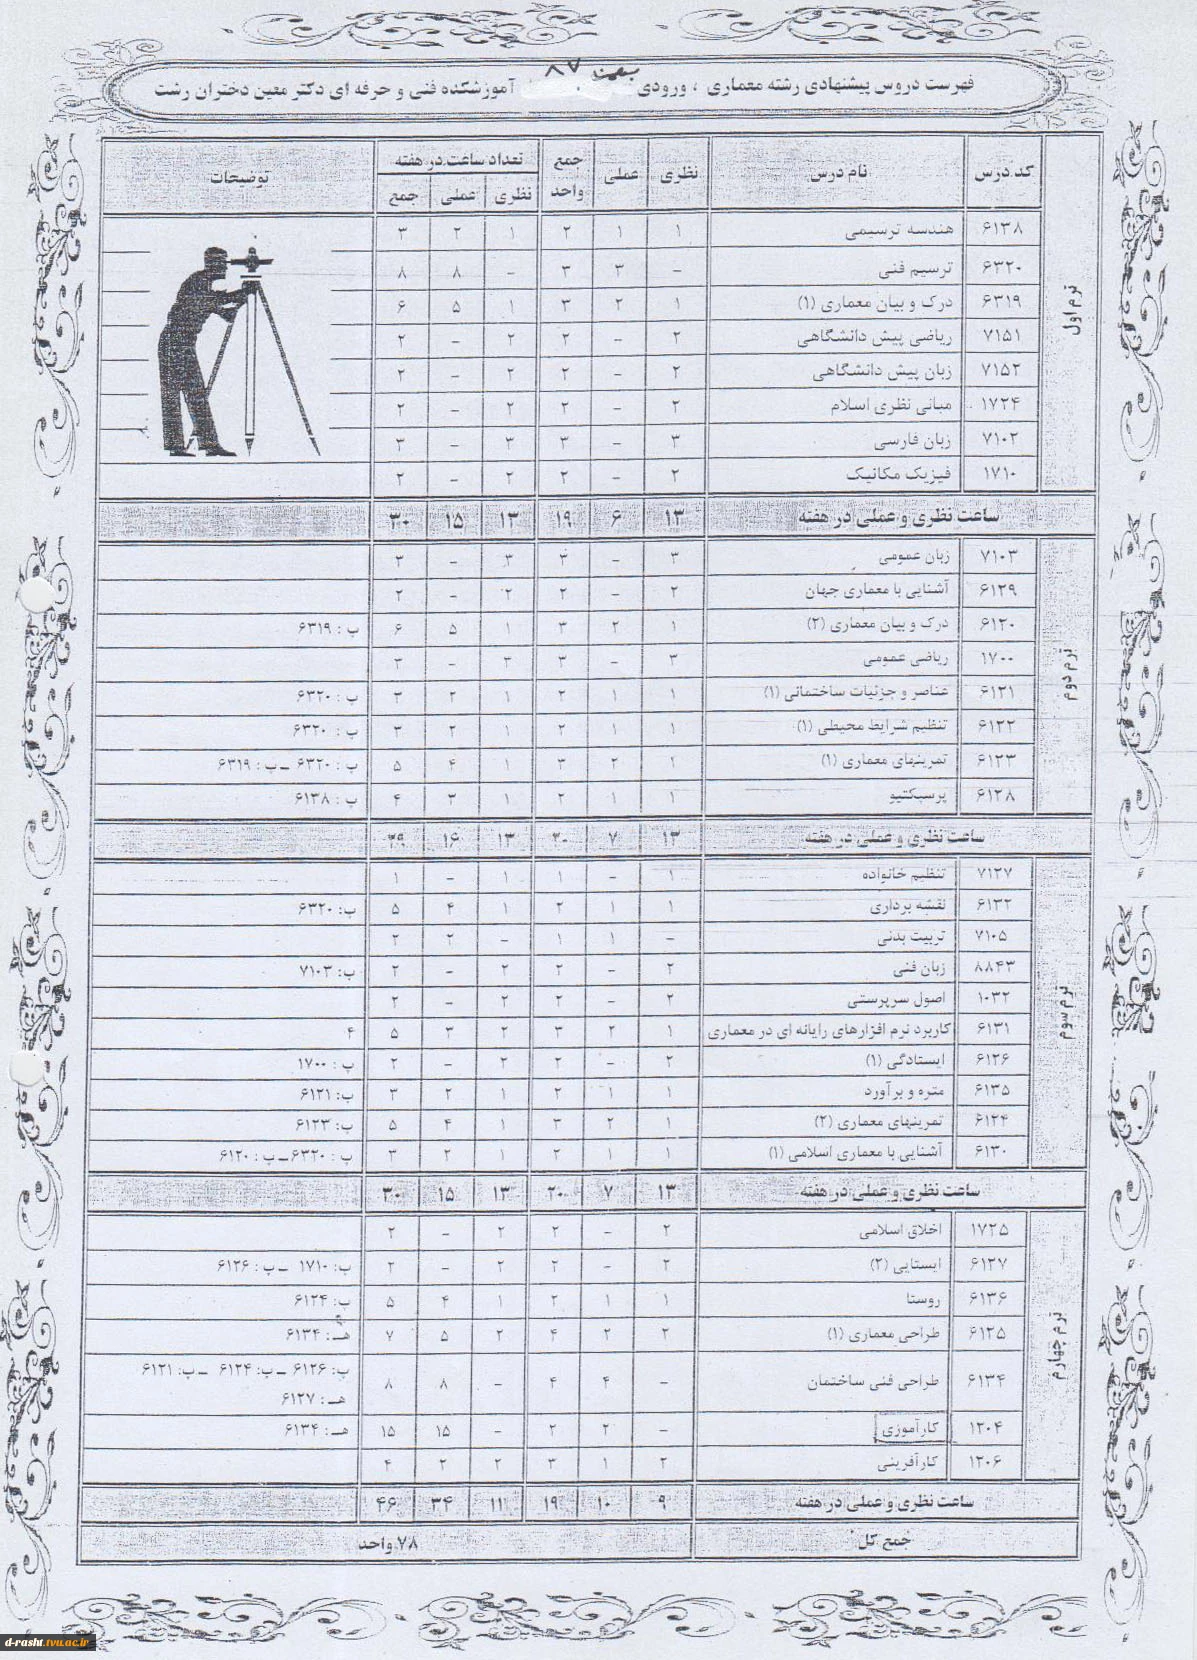 فهرست دروس پیشنهادی رشته معماری ، ورودی بهمن ۸۷ آموزشکده فنی و حرفه ای دکتر معین دختران رشت
کد درس نام درس نظری عملی جمع واحد تعداد ساعت در هفته توضیحات
نظری عملی جمع
ترم اول
۶۱۳۸ هندسه ترسیمی ۱ ۱ ۲ ۱ ۲ ۳
۶۳۲۰ ترسیم فنی - ۳ ۳ - ۸ ۸
۶۳۱۹ درک و بیان معماری (۱) ۱ ۲ ۳ ۱ ۵ ۶
۷۱۵۱ ریاضی پیش دانشگاهی ۲ - ۲ ۲ - ۲
۷۱۵۲ زبان پیش دانشگاهی ۲ - ۲ ۲ - ۲
۱۷۲۴ مبانی نظری اسلام ۲ - ۲ ۲ - ۲
۷۱۰۲ زبان فارسی ۳ - ۳ ۳ - ۳
۱۷۱۰ فیزیک مکانیک ۲ - ۲ ۲ - ۲
ساعت نظری و عملی در هفته ۱۳ ۶ ۱۹ ۱۳ ۱۵ ۳۰
ترم دوم
۷۱۰۳ زبان عمومی ۳ - ۳ ۳ - ۳
۶۱۲۹ آشنایی با معماری جهان ۲ - ۲ ۲ - ۲
۶۱۲۰ درک و بیان معماری (۲) ۱ ۲ ۳ ۱ ۵ ۶ پ : ۶۳۱۹
۱۷۰۰ ریاضی عمومی ۳ - ۳ ۳ - ۳
۶۱۲۱ عناصر و جزئیات ساختمانی (۱) ۱ ۱ ۲ ۱ ۲ ۳ پ : ۶۳۲۰
۶۱۲۲ تنظیم شرایط محیطی (۱) ۱ ۱ ۲ ۱ ۲ ۳ پ : ۶۳۲۰
۶۱۲۳ تمرینهای معماری (۱) ۱ ۲ ۳ ۱ ۴ ۵ پ : ۶۳۲۰ ــ پ : ۶۳۱۹
۶۱۲۸ پرسپکتیو ۱ ۱ ۲ ۱ ۳ ۴ پ : ۶۱۳۸
ساعت نظری و عملی در هفته ۱۳ ۷ ۲۰ ۱۳ ۱۶ ۲۹
ترم سوم
۷۱۲۷ تنظیم خانواده ۱ - ۱ ۱ - ۱
۶۱۳۲ نقشه برداری ۱ ۱ ۲ ۱ ۴ ۵ پ: ۶۳۲۰
۷۱۰۵ تربیت بدنی - ۱ ۱ - ۲ ۲
۸۸۴۳ زبان فنی ۲ - ۲ ۲ - ۲ پ: ۷۱۰۳
۱۰۳۲ اصول سرپرستی ۲ - ۲ ۲ - ۲
۶۱۳۱ کاربرد نرم افزارهای رایانه ای در معماری ۱ ۲ ۳ ۲ ۳ ۵ ۴
۶۱۲۶ ایستادگی (۱) ۲ - ۲ ۲ - ۲ پ : ۱۷۰۰
۶۱۳۵ متره و برآورد ۱ ۱ ۲ ۱ ۲ ۳ پ: ۶۱۲۱
۶۱۲۴ تمرینهای معماری (۲) ۱ ۲ ۳ ۱ ۴ ۵ پ: ۶۱۲۳
۶۱۳۰ آشنایی با معماری اسلامی (۱) ۱ ۱ ۲ ۱ ۲ ۳ پ : ۶۳۲۰ــ پ : ۶۱۲۰
ساعت نظری و عملی در هفته ۱۳ ۷ ۲۰ ۱۳ ۱۵ ۳۰
ترم چهارم
۱۷۲۵ اخلاق اسلامی ۲ - ۲ ۲ - ۲
۶۱۲۷ ایستایی (۲) ۲ - ۲ ۲ - ۲ پ: ۱۷۱۰ ــ پ : ۶۱۲۶
۶۱۳۶ روستا ۱ ۱ ۲ ۱ ۴ ۵ پ: ۶۱۲۴
۶۱۲۵ طراحی معماری (۱) ۲ ۲ ۴ ۲ ۵ ۷ هـ: ۶۱۳۴
۶۱۳۴ طراحی فنی ساختمان - ۴ ۴ - ۸ ۸ پ: ۶۱۲۶ ــ پ: ۶۱۲۴ ــ پ: ۶۱۲۱
هـ : ۶۱۲۷
۱۲۰۴ کارآموزی - ۲ ۲ - ۱۵ ۱۵ هـ : ۶۱۳۴
۱۲۰۶ کارآفرینی ۲ ۱ ۳ ۲ ۲ ۴
ساعت نظری و عملی در هفته ۹ ۱۰ ۱۹ ۱۱ ۳۴ ۴۶
جمع کل ۷۸ واحد
d-rasht.tvu.ac.ir